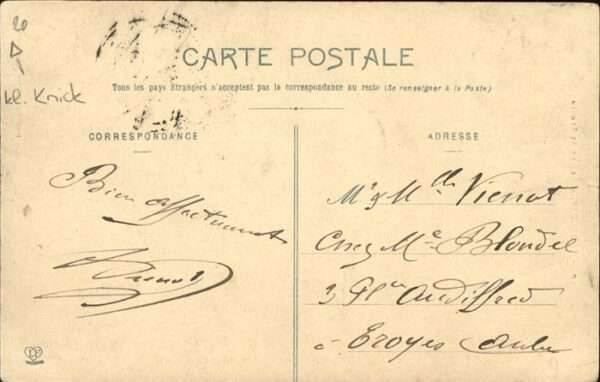 20
kl. Knick
CARTE POSTALE
Tous les pays Étrangers n'acceptent pas la correspondance au recto (Se renseigner à la Poste)
CORRESPONDANCE
ADRESSE
Bien affectueuse
Mr & Mlle Vienot
Chez Me Blondel
3 Pl. Audiffred
à Troyes Aube